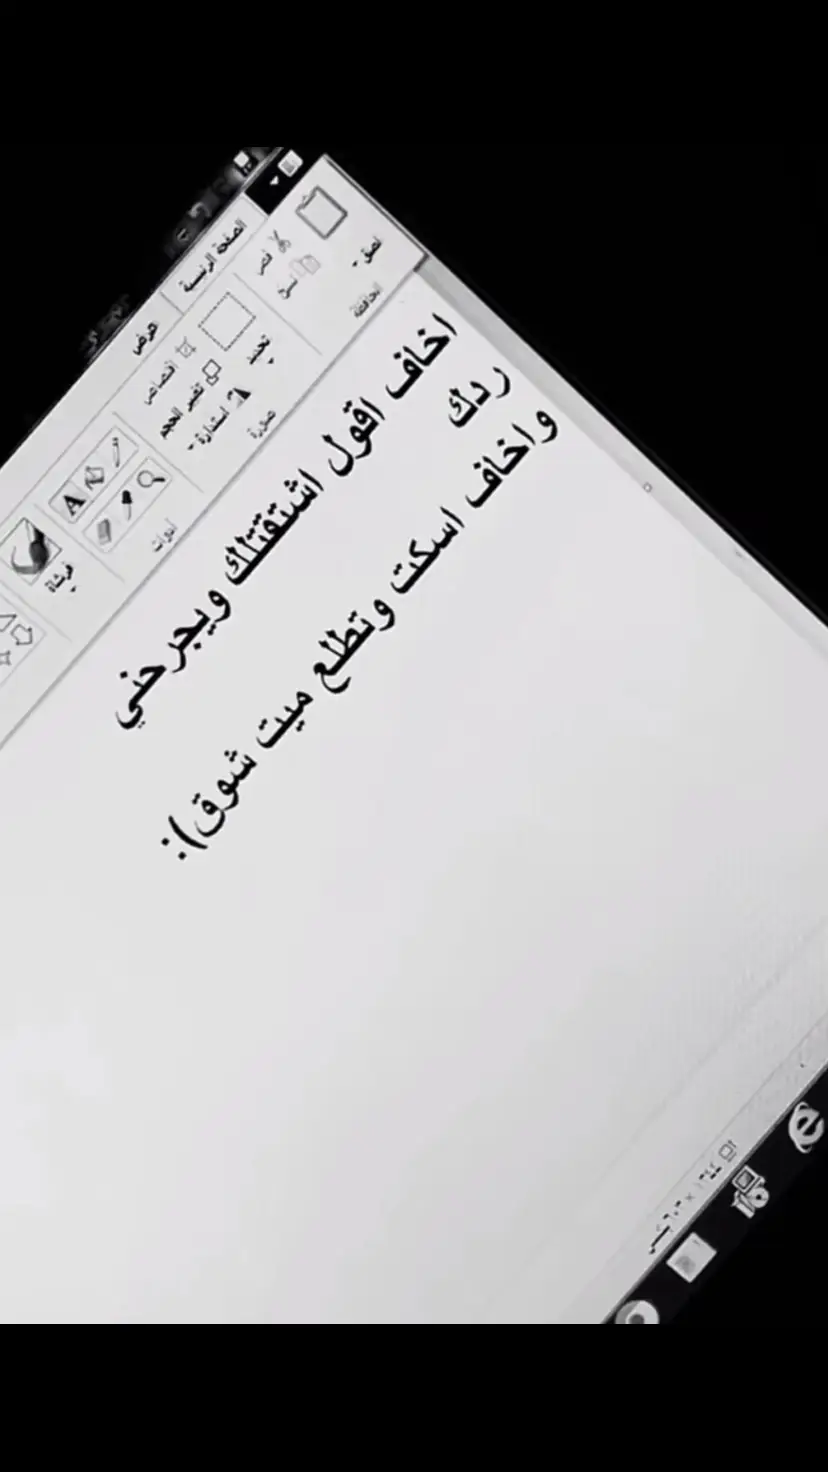 الصفحة الرئيسية
عرض
لصق
قص
نسخ
الحافظة
تحديد
اقتصاص
تغيير الحجم
استدارة
صورة
A
أدوات
فرشاة
اخاف اقول اشتقتلك ويجرحني
ردك
واخاف اسكت وتطلع ميت شوق):